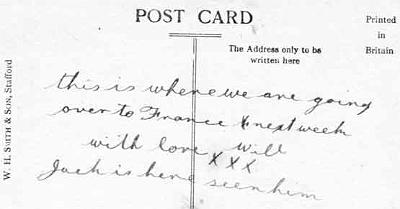 POST CARD
Printed
in
Britain
The Address only to be
written here
W. H. SMITH & SON, Stafford
this is where we are going
over to France X next week
with love Will
XXX
Jack is here seen him